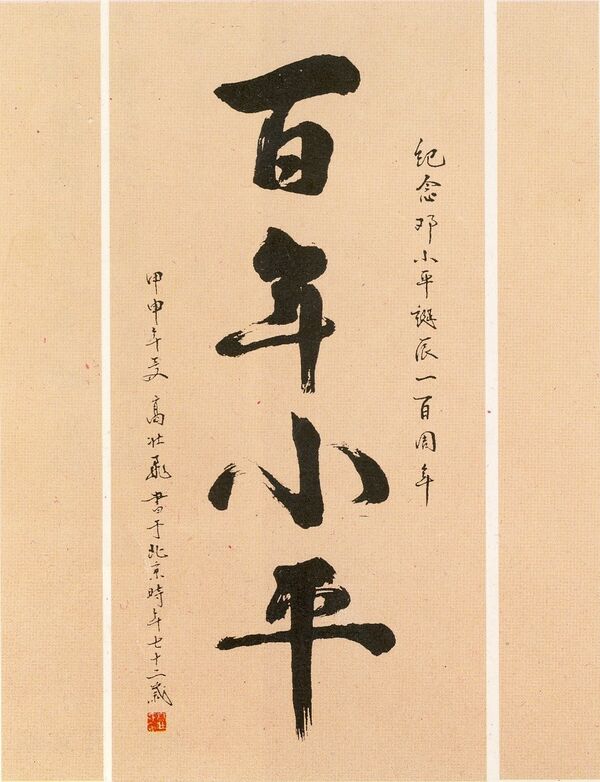 纪念邓小平誕辰一百周年
百年小平
甲申年夏 高壮飛 書于北京時年七十二歲